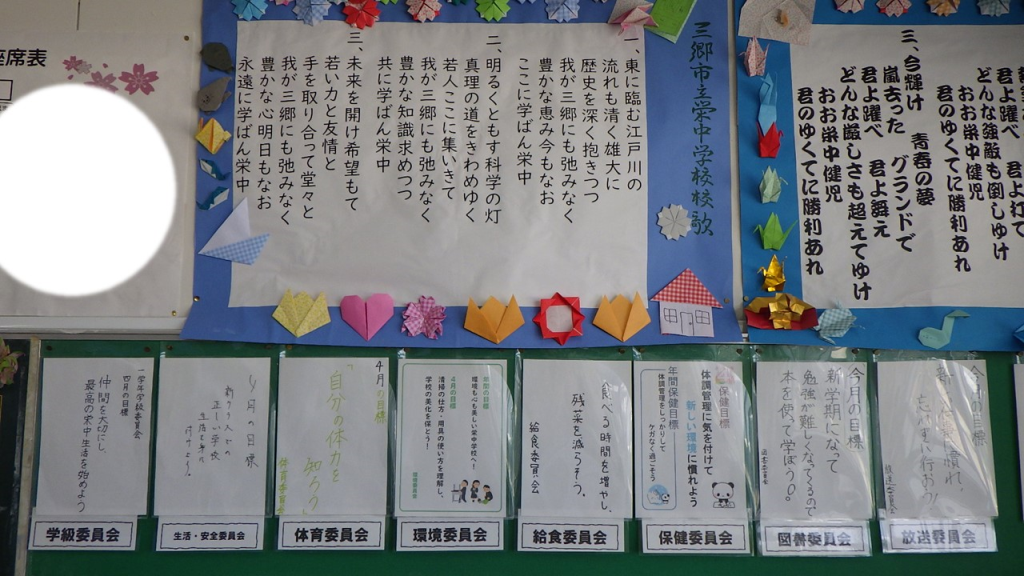 座席表
三郷市立栄中学校校歌
一、東に臨む江戸川の
流れも清く雄大に
歴史を深く抱きつつ
我が三郷にも弛みなく
豊かな恵み今もなお
ここに学ばん栄中
二、明るくともす科学の灯
真理の道をきわめゆく
若人ここに集いきて
我が三郷にも弛みなく
豊かな知識求めつつ
共に学ばん栄中
三、未来を開け希望もて
若い力と友情と
手を取り合って堂々と
我が三郷にも弛みなく
豊かな心明日もなお
永遠に学ばん栄中
君よ打て
どんな強敵も倒しゆけ
おお栄中健児
君のゆくてに勝利あれ
三、今輝け 青春の夢
嵐去った グランドで
君よ躍べ 君よ舞え
どんな厳しさも超えてゆけ
おお栄中健児
君のゆくてに勝利あれ
一学年学級委員会
四月の目標
仲間を大切にし、
最高の栄中生活を始めよう
学級委員会
4月の目標
生活・安全委員会
4月の目標
「自分の体力を
知ろう」
体育委員会
体育委員会
年間の目標
環境も心も美しい栄中学校へ!
4月の目標
清掃の仕方・用具の使い方を理解し、
学校の美化を保とう!
環境委員会
環境委員会
食べる時間を増やし、
残菜を減らそう。
給食委員会
給食委員会
保健目標
体調管理に気を付けて
新しい環境に慣れよう
年間保健目標
体調管理をしっかりして
ケガなく過ごそう
保健委員会
今月の目標
新学期になって
勉強が難しくなってくるので
本を使って学ぼう!
図書委員会
図書委員会
今月の目標
慣れ、
放送委員会
放送委員会